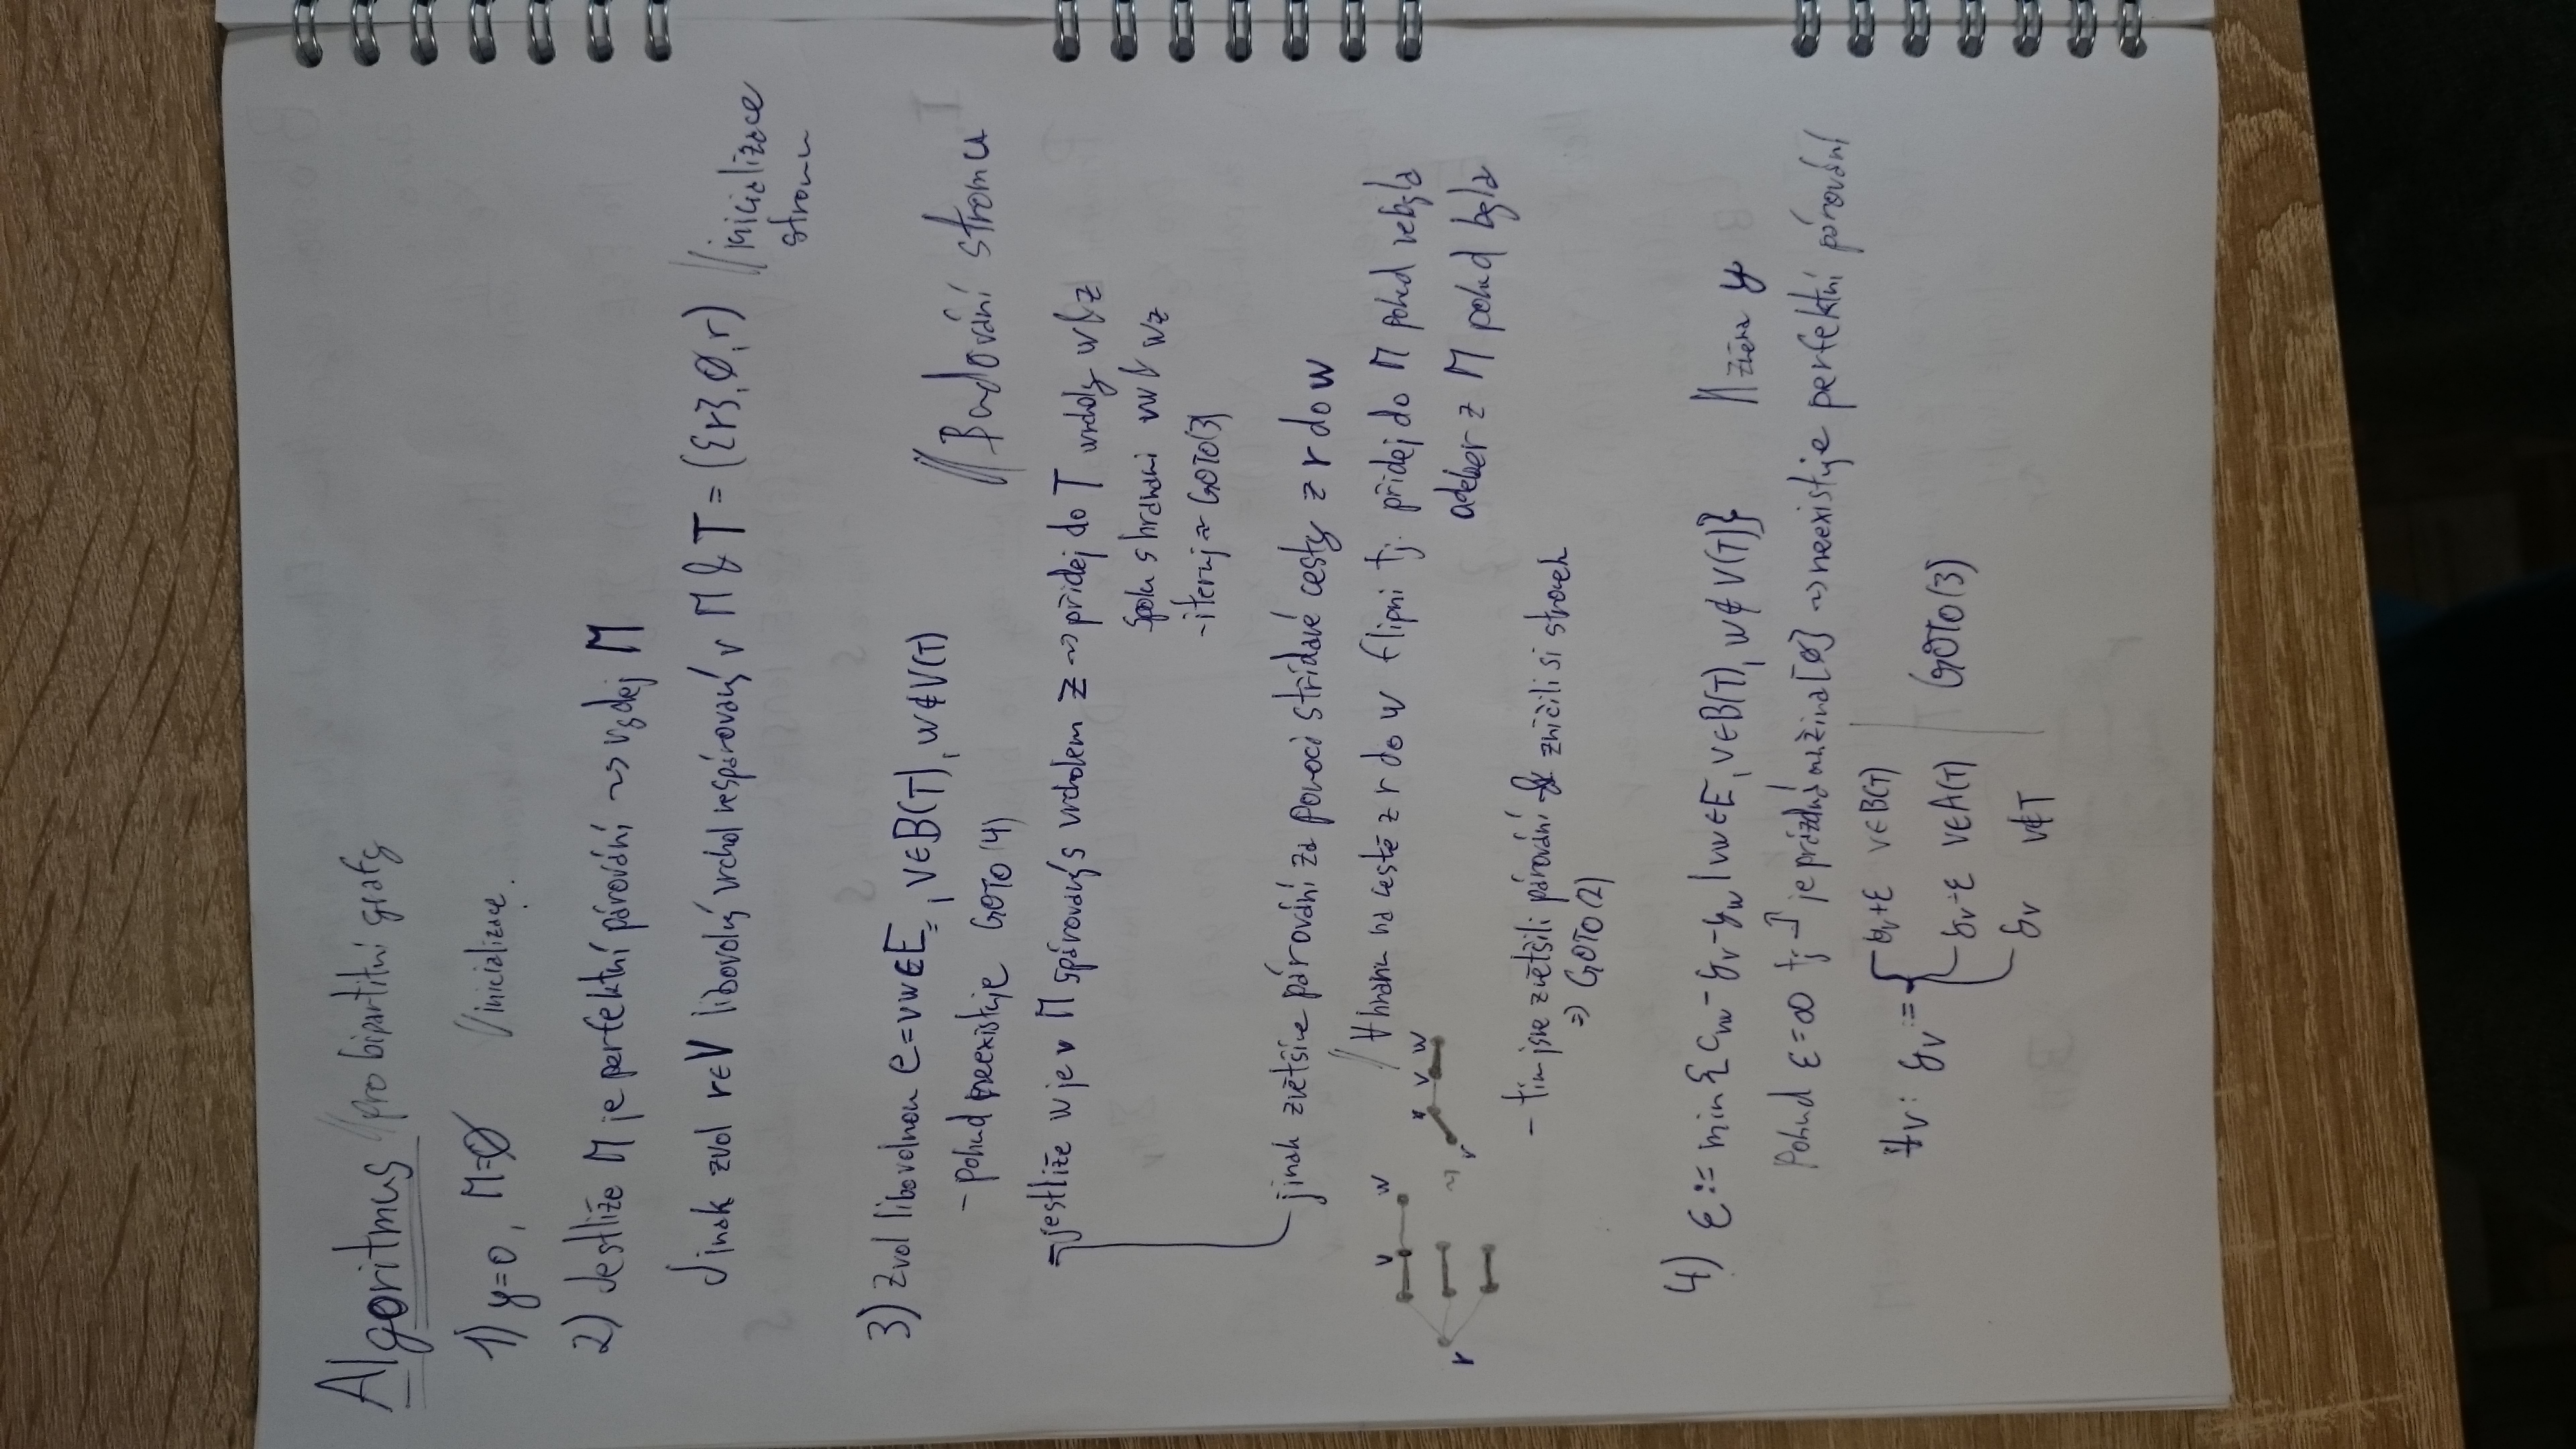 Algoritmus // pro bipartitní grafy
1) y=0, M=∅ // inicializace.
2) Jestliže M je perfektní párování ⇝ vydej M
Jinak zvol r∈V libovolný vrchol nespárovaný v M & T = ({r},∅,r) // inicializace
stromu
3) zvol libovolnou e=vw∈E₌, v∈B(T), w∉V(T) // Budování stromu
- pokud neexistuje GOTO(4)
- jestliže w je v M spárovaný s vrcholem z ⇝ přidej do T vrcholy w & z
spolu s hranami vw & wz
- iteruj ≈ GOTO(3)
jinak zvětšíme párování za pomoci střídavé cesty z r do w
// ∀ hranu na cestě z r do w flipni tj. přidej do M pokud nebyla
odeber z M pokud byla
v w ⇝ r x v w
r
- tím jsme zvětšili párování & zničili si strom
⇒ GOTO(2)
4) ε := min{c_vw - y_v - y_w | vw∈E, v∈B(T), w∉V(T)} // změna y
Pokud ε=∞ tj. je prázdná množina [∅] ⇝ neexistuje perfektní párování
∀v: y_v := { y_v+ε v∈B(T)
y_v-ε v∈A(T) GOTO(3)
y_v v∉T